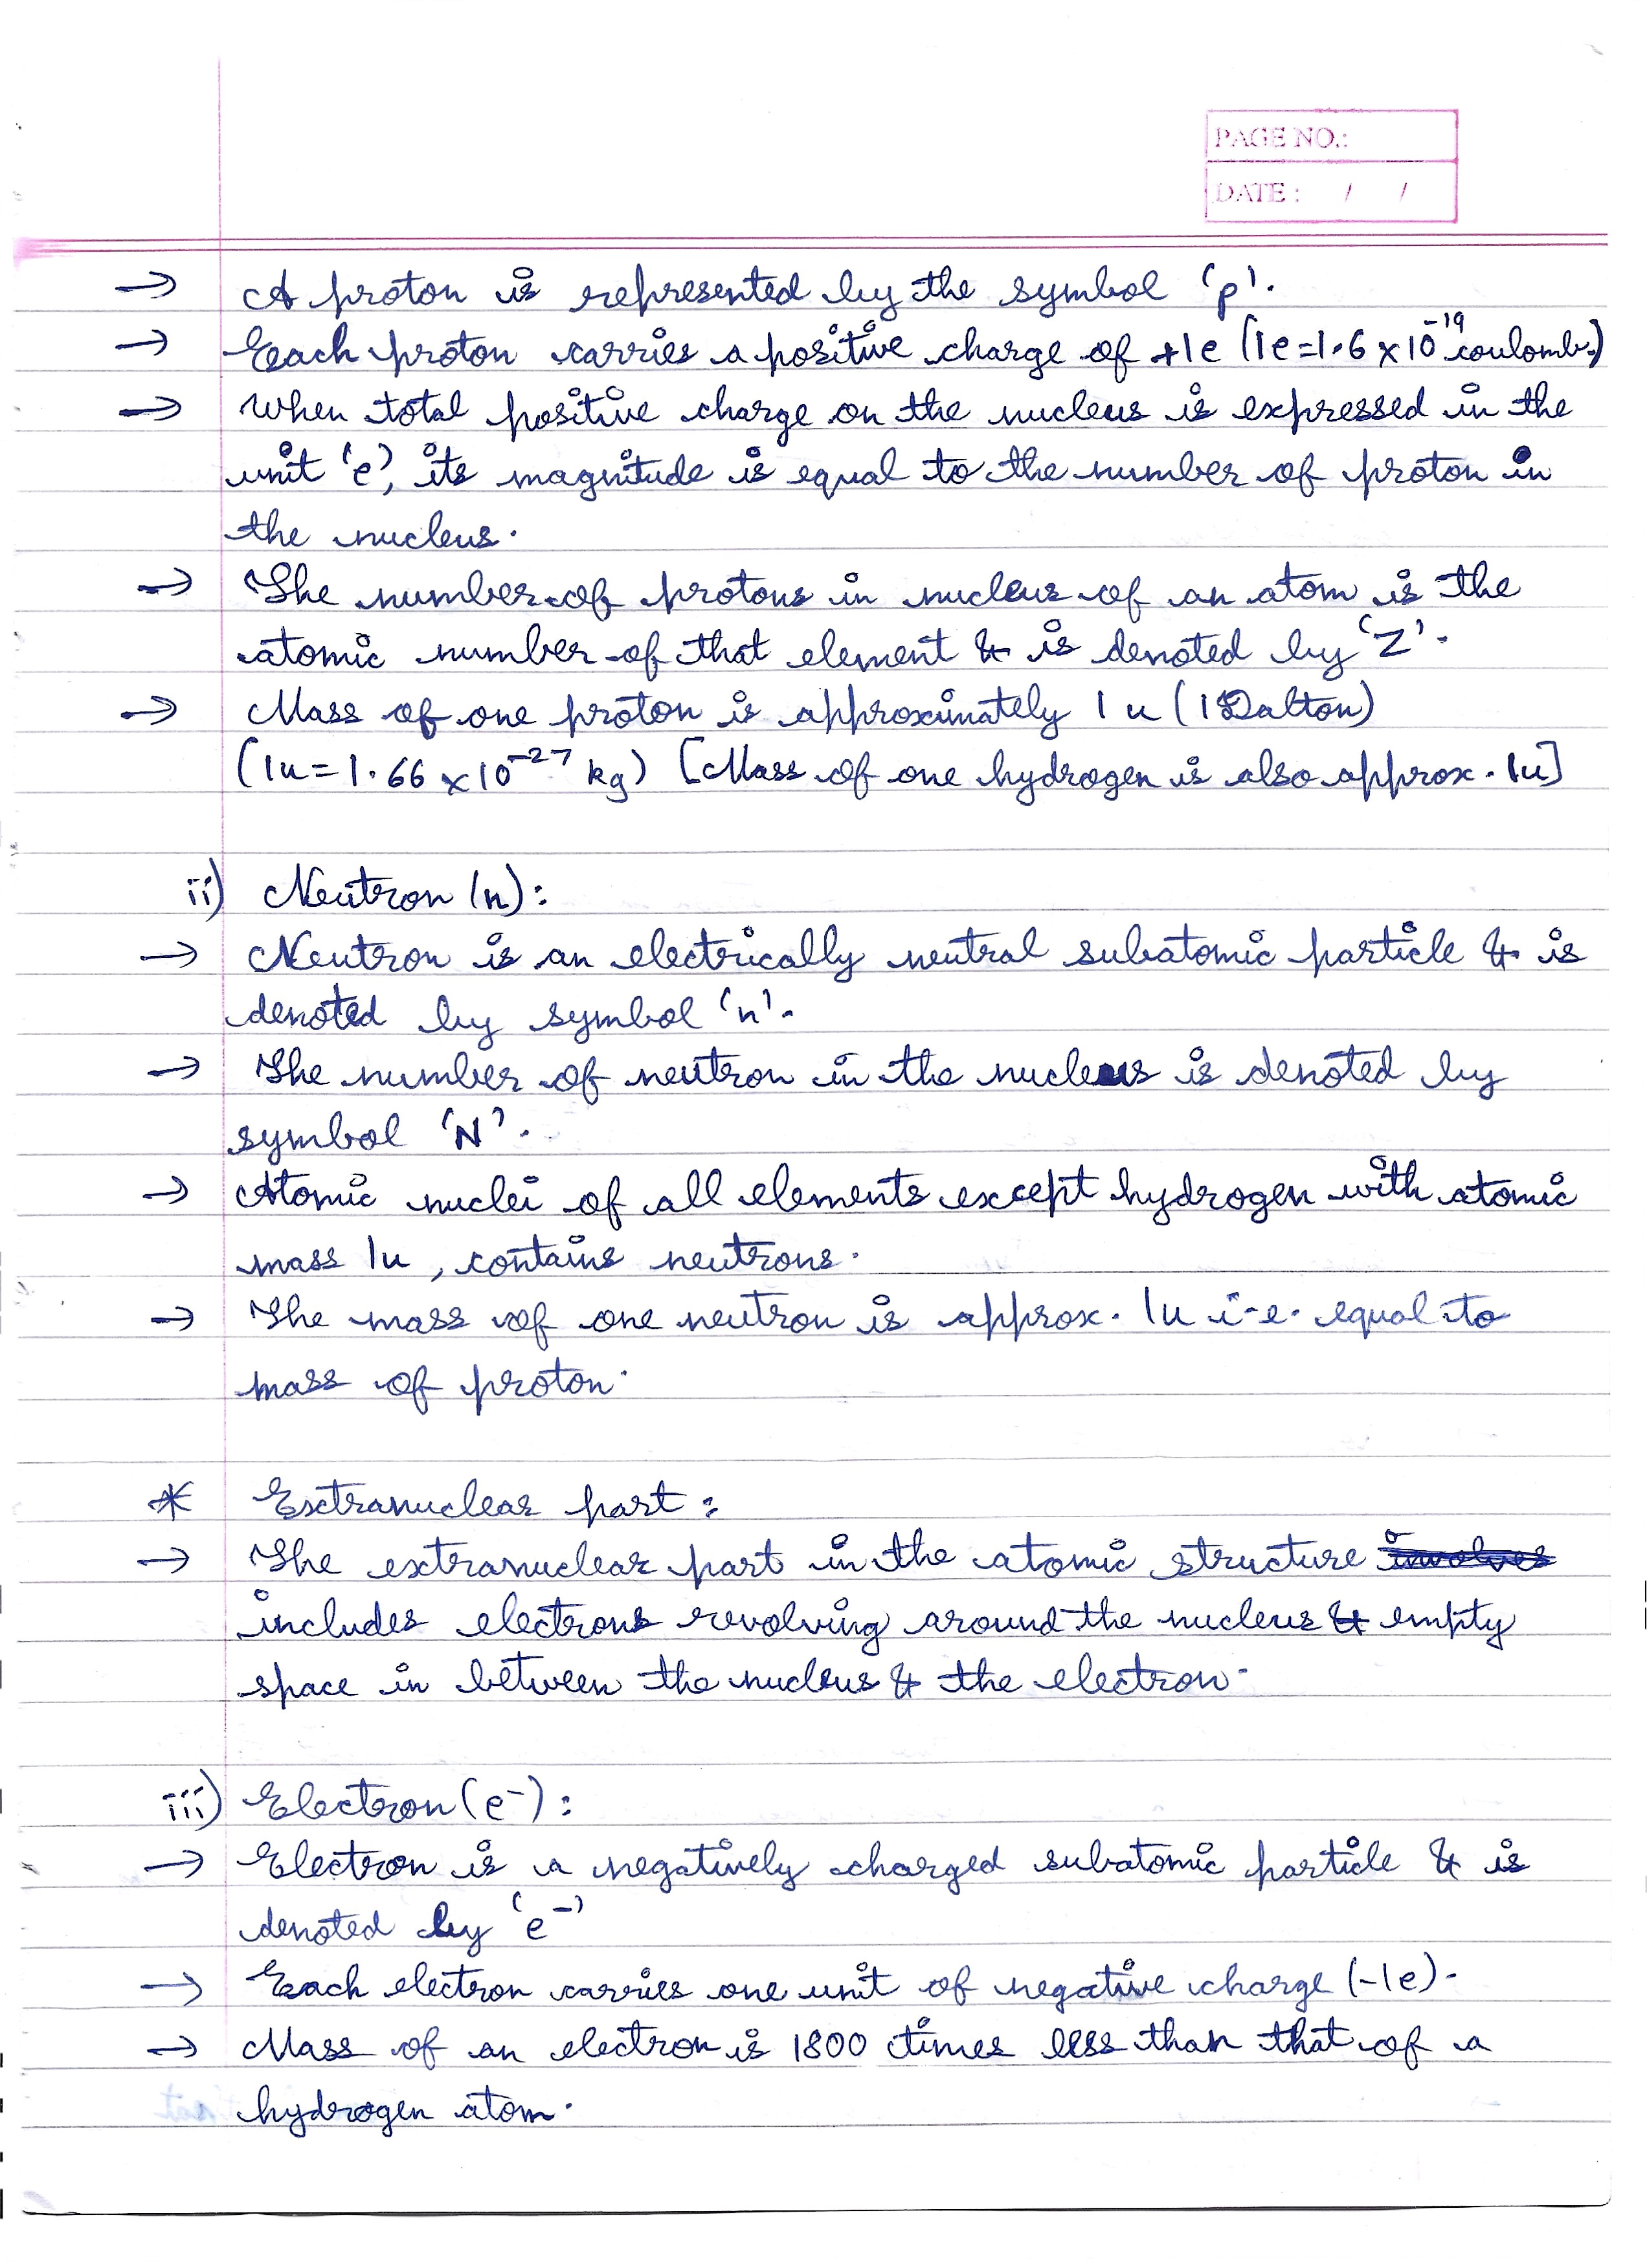 PAGE NO.:
DATE : / /
→ A proton is represented by the symbol 'p'.
→ Each proton carries a positive charge of +1e (1e=1.6×10⁻¹⁹ coulomb.)
→ When total positive charge on the nucleus is expressed in the
unit 'e', its magnitude is equal to the number of proton in
the nucleus.
→ The number of protons in nucleus of an atom is the
atomic number of that element & is denoted by 'Z'.
→ Mass of one proton is approximately 1u (1Dalton)
(1u=1.66×10⁻²⁷ kg) [Mass of one hydrogen is also approx. 1u]
ii) Neutron (n):
→ Neutron is an electrically neutral subatomic particle & is
denoted by symbol 'n'.
→ The number of neutron in the nucleus is denoted by
symbol 'N'.
→ Atomic nuclei of all elements except hydrogen with atomic
mass 1u, contains neutrons.
→ The mass of one neutron is approx. 1u i.e. equal to
mass of proton.
* Extranuclear part:
→ The extranuclear part in the atomic structure involves
includes electrons revolving around the nucleus & empty
space in between the nucleus & the electron.
iii) Electron (e⁻):
→ Electron is a negatively charged subatomic particle & is
denoted by 'e⁻'
→ Each electron carries one unit of negative charge (-1e).
→ Mass of an electron is 1800 times less than that of a
hydrogen atom.